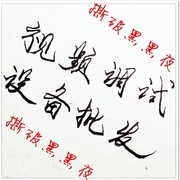 撕破黑黑夜
视频调试
设备批发
撕破黑黑夜